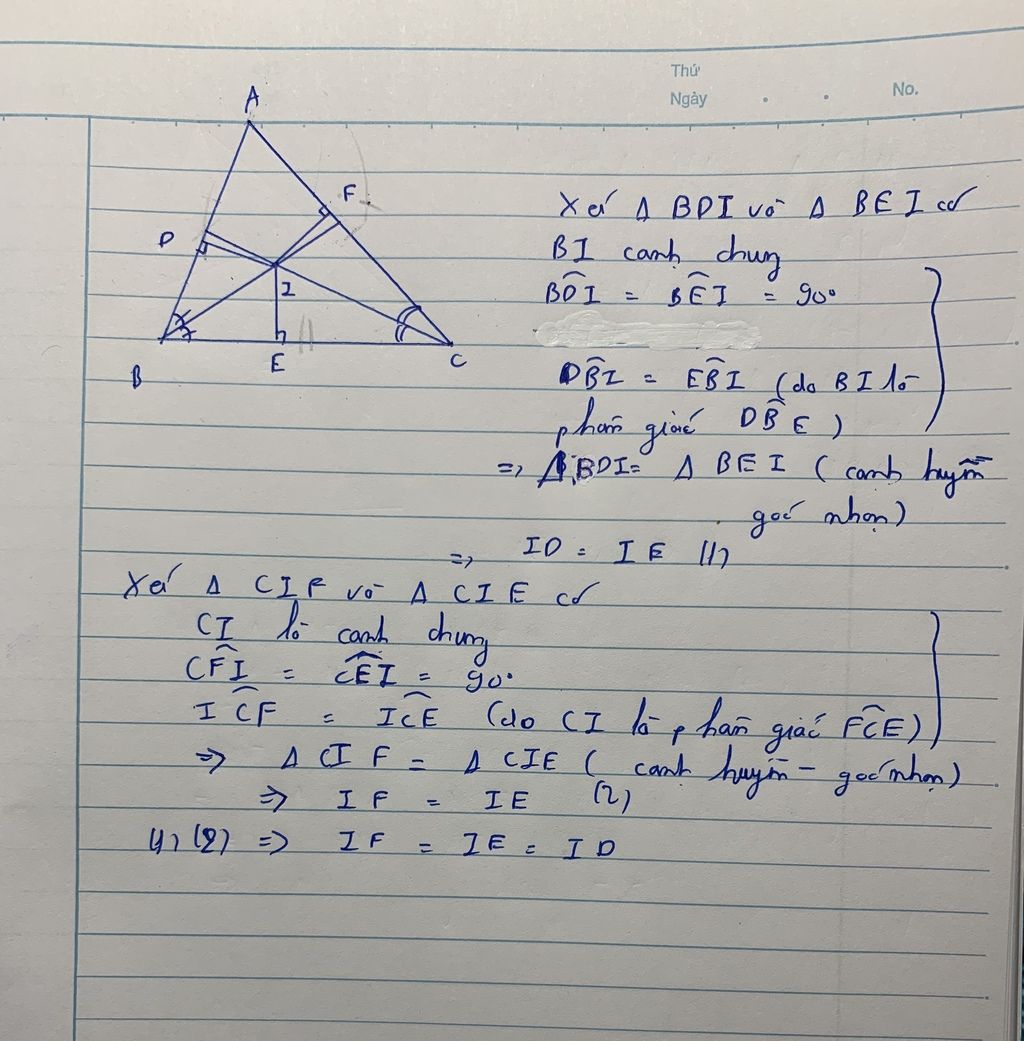 Thứ
Ngày . . No.
A
F
D
I
B
E
C
Xét Δ BDI và Δ BEI có
BI cạnh chung
BDI = BEI = 90°
DBI = EBI (do BI là
phân giác DBE)
=> Δ BDI = Δ BEI (cạnh huyền
góc nhọn)
=> ID = IE (1)
Xét Δ CIF và Δ CIE có
CI là cạnh chung
CFI = CEI = 90°
ICF = ICE (do CI là phân giác FCE)
=> Δ CIF = Δ CIE (cạnh huyền - góc nhọn)
=> IF = IE (2)
(1), (2) => IF = IE = ID